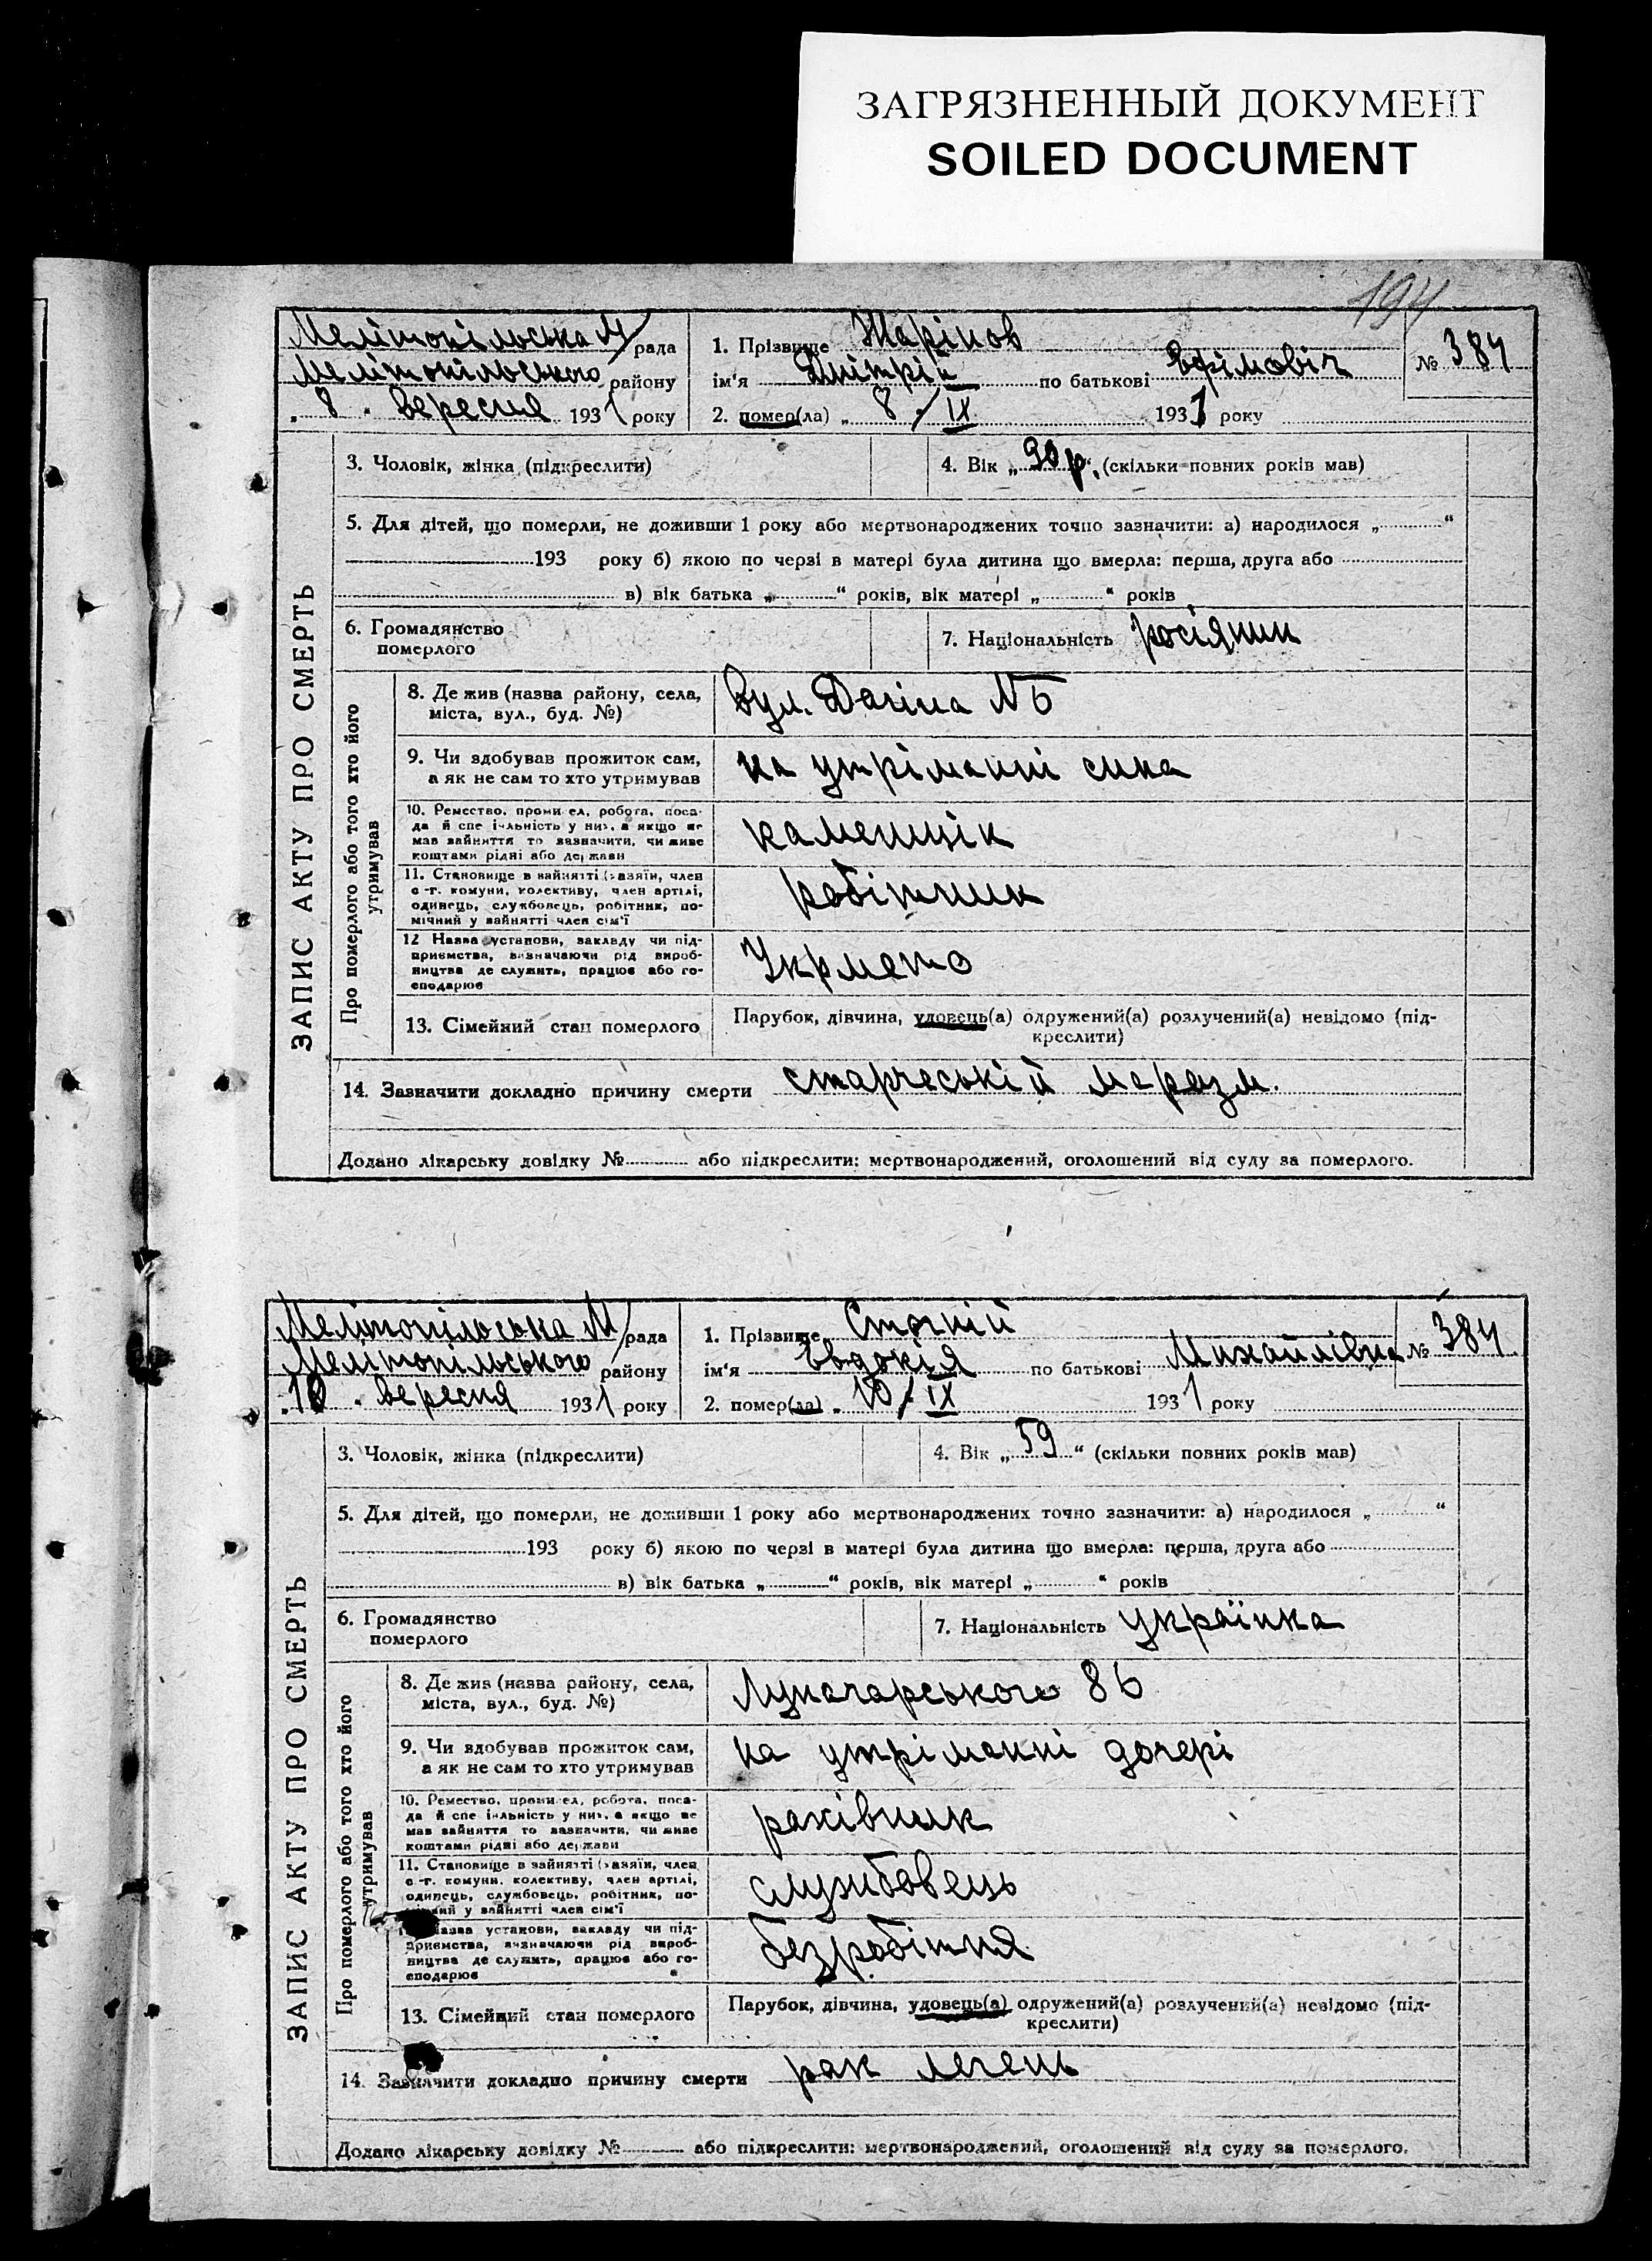 ЗАГРЯЗНЕННЫЙ ДОКУМЕНТ
SOILED DOCUMENT
194
Мелітопільська М рада
Мелітопільського району
„ 8 „ вересня 1931 року
1. Прізвище Жарінов
ім'я Дмітрій по батькові Эфімовіч
№ 384
2. помер(ла) „ 8 / ІХ 1931 року
ЗАПИС АКТУ ПРО СМЕРТЬ
3. Чоловік, жінка (підкреслити)
4. Вік „ 90 р. (скільки повних років мав)
5. Для дітей, що померли, не доживши 1 року або мертвонароджених точно зазначити: а) народилося „ “
193 року б) якою по черзі в матері була дитина що вмерла: перша, друга або
в) вік батька „ “ років, вік матері „ “ років
6. Громадянство
померлого
7. Національність росіянин
Про померлого або того хто його
утримував
8. Де жив (назва району, села,
міста, вул., буд. №)
Вул. Дачна №
9. Чи здобував прожиток сам,
а як не сам то хто утримував
на утріманні сина
10. Ремество, промисел, робота, поса-
да й спеціальність у них, а якщо не
мав зайняття то зазначити, чи живе
коштами рідні або держави
каменщік
11. Становище в зайнятті (хазяїн, член
с.-г. комуни, колективу, член артілі,
одинець, службовець, робітник, по-
мічний у зайнятті член сім'ї
робітник
12 Назва установи, закладу чи під-
приємства, визначаючи рід вироб-
ництва де служить, працює або го-
сподарює
Укрмето
13. Сімейний стан померлого
Парубок, дівчина, удовець(а) одружений(а) розлучений(а) невідомо (під-
креслити)
14. Зазначити докладно причину смерти старчеський маразм.
Додано лікарську довідку № або підкреслити: мертвонароджений, оголошений від суду за померлого.
Мелітопільська М рада
Мелітопільського району
„ 10 „ вересня 1931 року
1. Прізвище
ім'я Євдокія по батькові Михайлівна
№ 384.
2. помер(ла) „ 10 / ІХ 1931 року
ЗАПИС АКТУ ПРО СМЕРТЬ
3. Чоловік, жінка (підкреслити)
4. Вік „ 59 “ (скільки повних років мав)
5. Для дітей, що померли, не доживши 1 року або мертвонароджених точно зазначити: а) народилося „ “
193 року б) якою по черзі в матері була дитина що вмерла: перша, друга або
в) вік батька „ “ років, вік матері „ “ років
6. Громадянство
померлого
7. Національність українка
Про померлого або того хто його
утримував
8. Де жив (назва району, села,
міста, вул., буд. №)
Луначарського 86
9. Чи здобував прожиток сам,
а як не сам то хто утримував
на утріманні дочері
10. Ремество, промисел, робота, поса-
да й спеціальність у них, а якщо не
мав зайняття то зазначити, чи живе
коштами рідні або держави
рахівник
11. Становище в зайнятті (хазяїн, член
с.-г. комуни, колективу, член артілі,
одинець, службовець, робітник, по-
мічний у зайнятті член сім'ї
службовець
Назва установи, закладу чи під-
приємства, визначаючи рід вироб-
ництва де служить, працює або го-
сподарює
безробітня
13. Сімейний стан померлого
Парубок, дівчина, удовець(а) одружений(а) розлучений(а) невідомо (під-
креслити)
14. Зазначити докладно причину смерти рак легень
Додано лікарську довідку № або підкреслити: мертвонароджений, оголошений від суду за померлого.